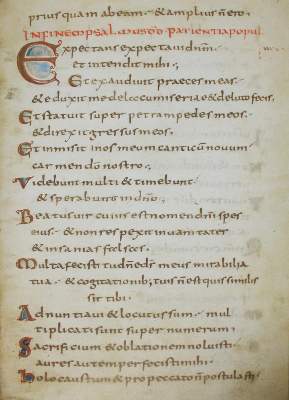 prius quam abeam · & amplius ñ ero ·
IN FINEM PSALMUS D̄D̄ PATIENTIA POPUL
Expectans expectaui dñm ·
& intendit mihi ·
Et exaudiuit praeces meas ·
& eduxit me de lacu miseriae & de luto fecis
Et statuit super petram pedes meos ·
& direxit gressus meos ·
Et inmisit in os meum canticū nouum
carmen dō nostro ·
Videbunt multi & timebunt
& sperabunt in dñō ·
Beatus uir cuius est nomen dñi spes
eius · & non respexit in uanitates
& insanias falsas ·
Multa fecisti tu dñe ds meus mirabilia
tua · & cogitationib; tuis ñ est quis similis
sit tibi ·
Adnuntiaui & locutus sum · mul
tiplicati sunt super numerum
Sacrificium & oblationem noluisti
aures autem perfecisti mihi ·
Holocaustum & pro peccato ñ postulasti